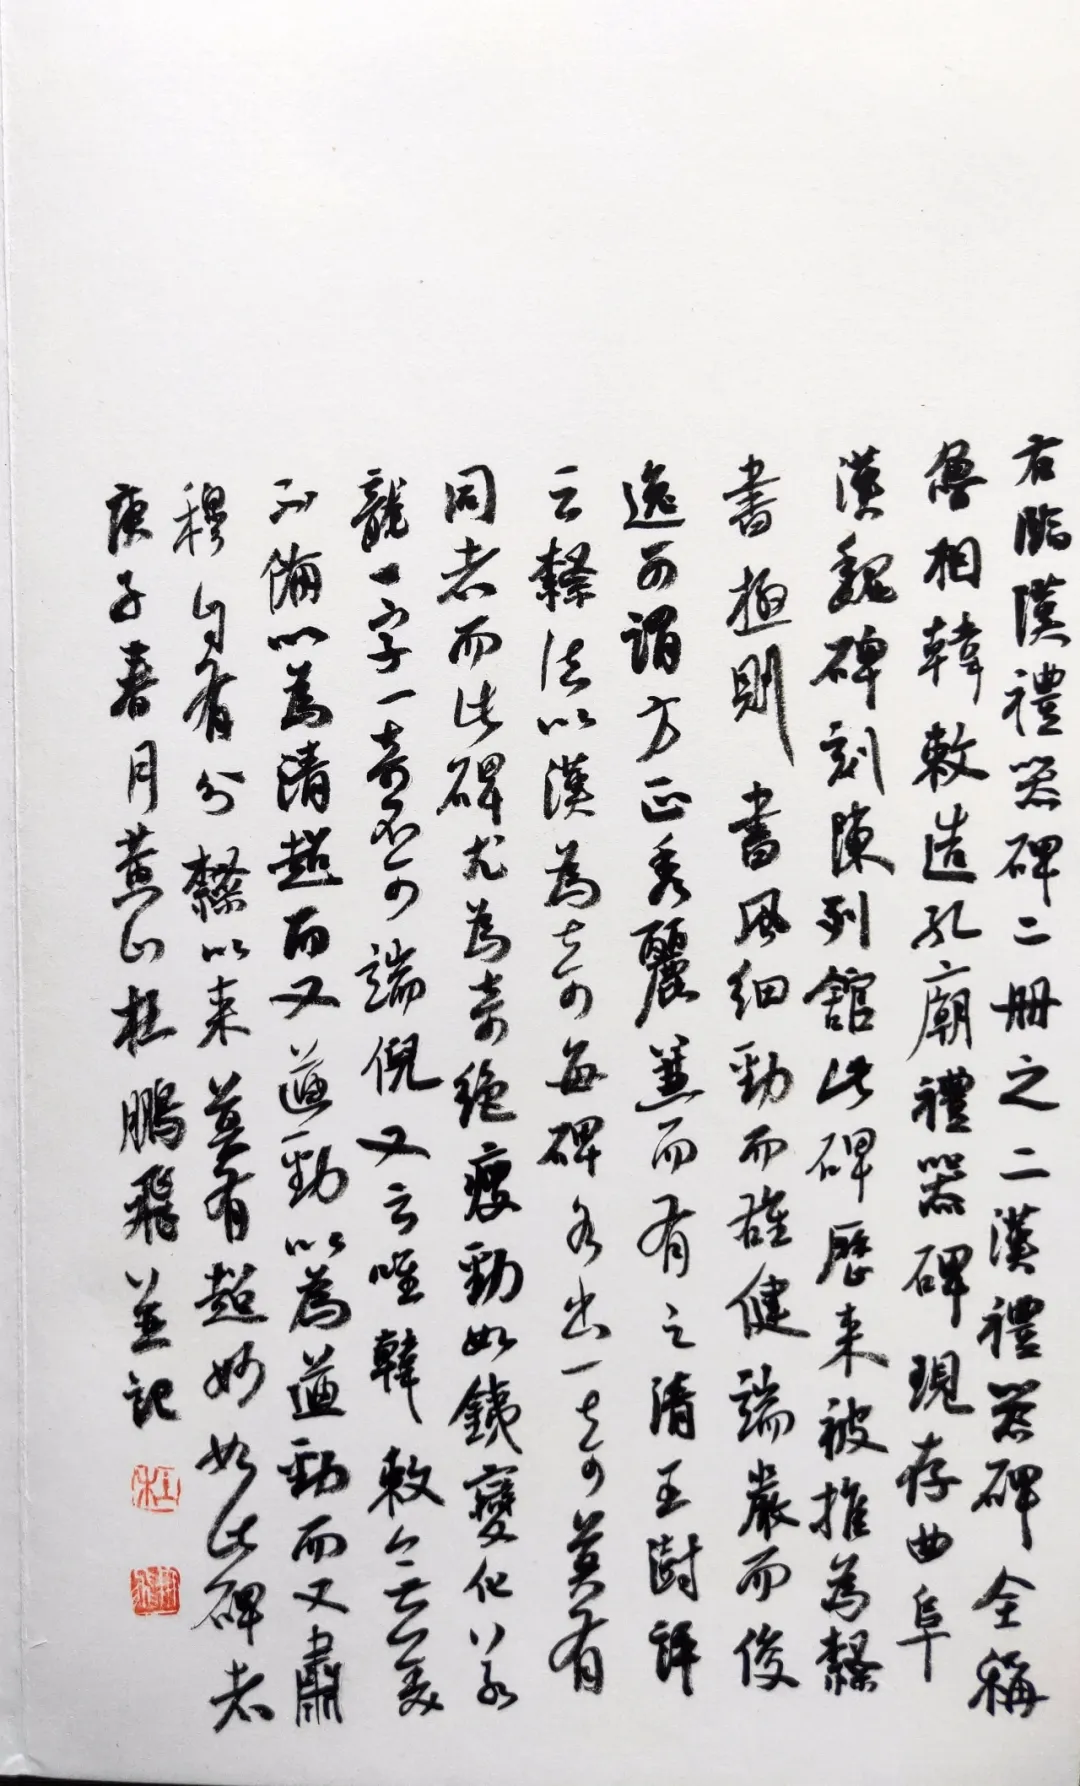 右臨漢禮器碑二冊之二漢禮器碑全稱
魯相韓敕造孔廟禮器碑現存曲阜
漢魏碑刻陳列館此碑歷来被推為隸
書極則書風細勁而雄健端嚴而俊
逸可謂方正秀麗蒹而有之清王澍評
云隸法以漢為奇每碑各出一奇莫有
同者而此碑尤為奇絕瘦勁如鐵變化若
龍一字一奇不可端倪又云唯韓敕無美
不備以為清超而又遒勁以為遒勁而又肅
穆自有分隸以来莫有超妙如此碑者
庚子春月黄山杜鵬飛並記
杜